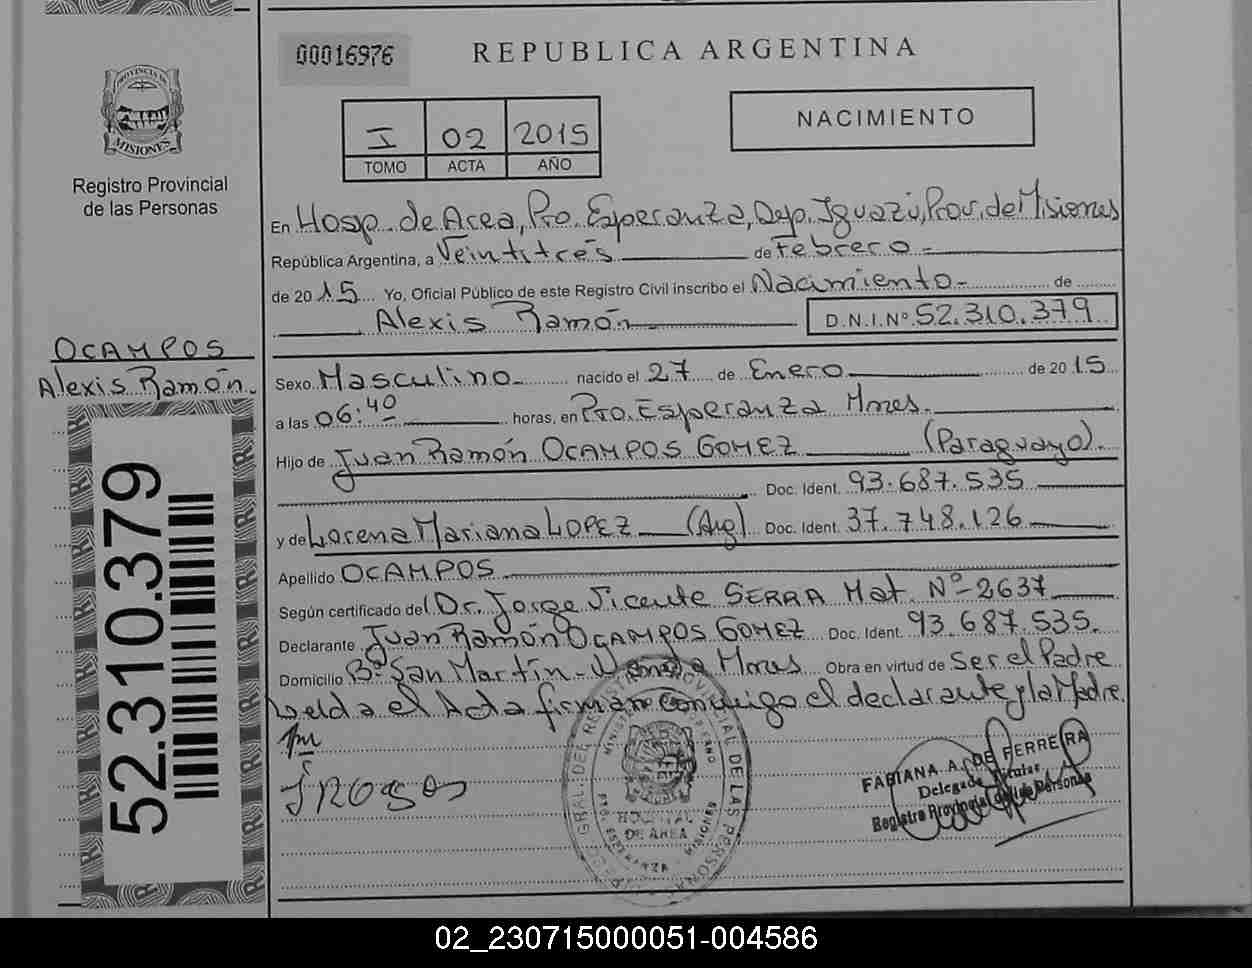 00016976
REPUBLICA ARGENTINA
I 02 2015
TOMO ACTA AÑO
NACIMIENTO
PROVINCIA DE
MISIONES
Registro Provincial
de las Personas
En Hosp. de Area, Pto. Esperanza, Dep. Iguazú, Prov. de Misiones
República Argentina, a Veintitrés de Febrero
de 2015 Yo, Oficial Público de este Registro Civil inscribo el Nacimiento de
Alexis Ramón D.N.I.Nº 52.310.379
OCAMPOS
Alexis Ramón
52.310.379
Sexo Masculino nacido el 27 de Enero de 2015
a las 06:40 horas, en Pto. Esperanza Mnes.
Hijo de Juan Ramón OCAMPOS GOMEZ (Paraguayo).
Doc. Ident. 93.687.535
y de Lorena Mariana LOPEZ (Arg) Doc. Ident. 37.748.126
Apellido OCAMPOS
Según certificado del Dr. Jorge Vicente SERRA Mat. Nº 2637
Declarante Juan Ramón OCAMPOS GOMEZ Doc. Ident. 93.687.535.
Domicilio Bº San Martín - Wanda Mnes Obra en virtud de Ser el Padre
Leída el Acta firman conmigo el declarante y la Madre.
HOSPITAL
DE AREA
PTO. ESPERANZA - MISIONES
FABIANA A. DE FERREIRA
Delegada Titular
Registro Provincial de las Personas
02_230715000051-004586